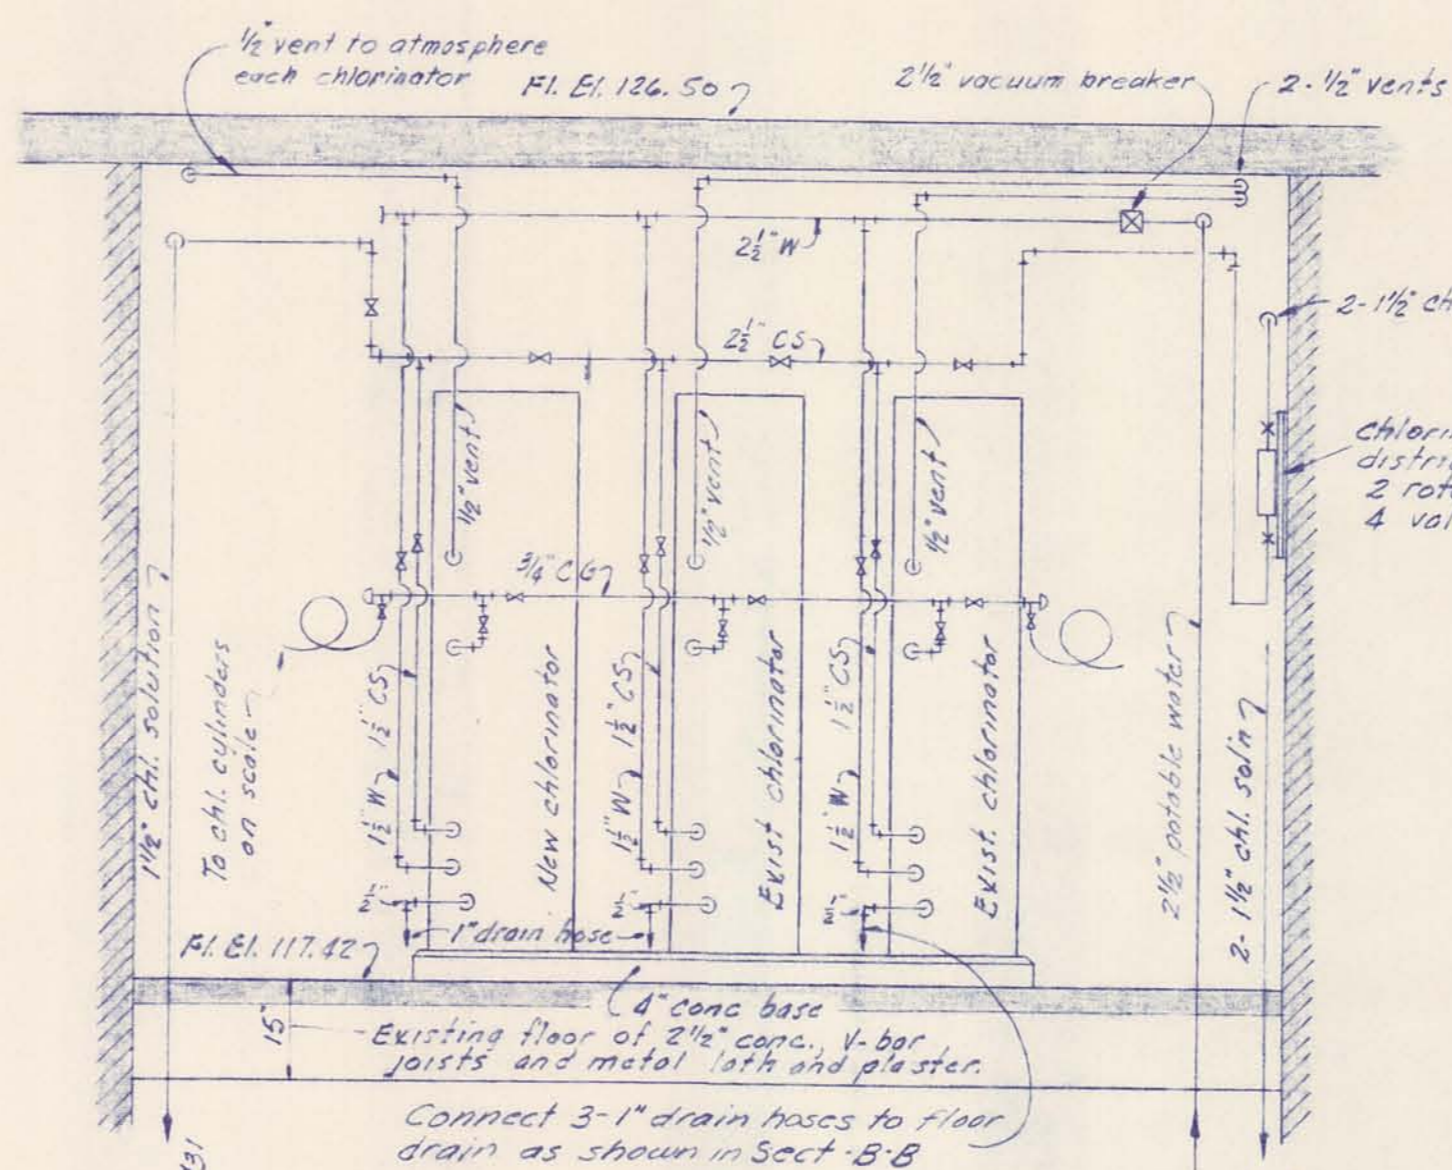 1/2" vent to atmosphere
each chlorinator
Fl. El. 126.50
2 1/2" vacuum breaker
2-1/2" vents
2 1/2" W
2 1/2" CS
2-1 1/2"
1/2" vent
1/2" vent
1/2" vent
3/4" CG
2 rot
4 val
1 1/2" chl. solution
To chl. cylinders
on scale
1 1/2" W
1 1/2" CS
New chlorinator
1 1/2" W
1 1/2" CS
Exist chlorinator
1 1/2" W
1 1/2" CS
Exist. chlorinator
2 1/2" potable water
2-1 1/2" chl. sol'n
1" drain hose
Fl. El. 117.42
4" conc base
15"
Existing floor of 2 1/2" conc., V-bar
joists and metal lath and plaster.
Connect 3-1" drain hoses to floor
drain as shown in Sect-B-B